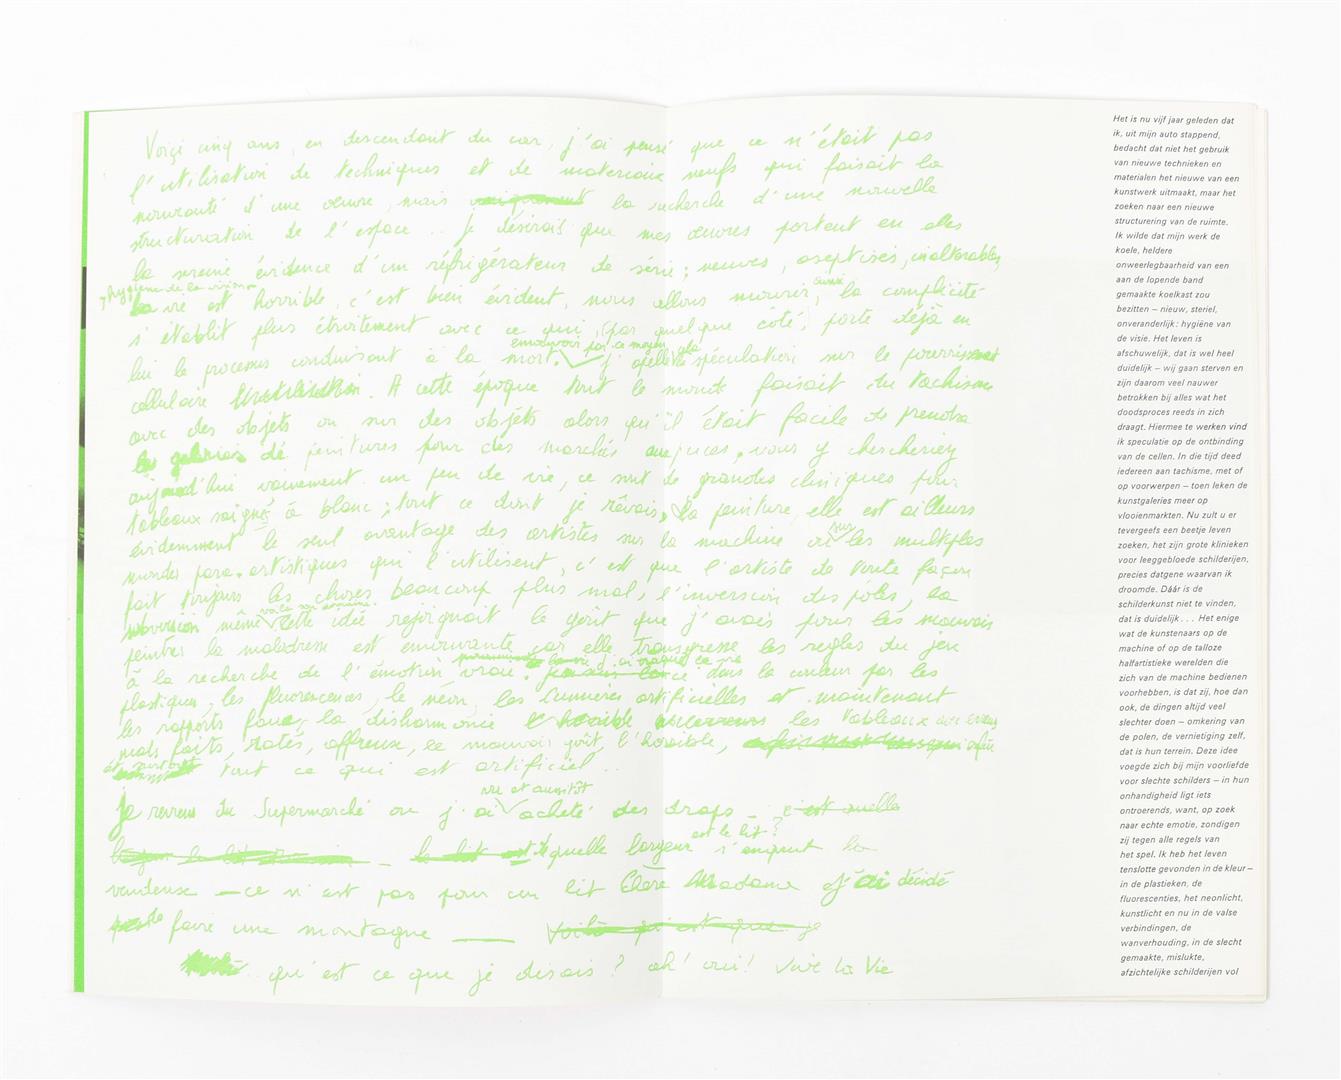 Voiçi cinq ans, en descendant du car, j'ai pensé que ce n'était pas
l'utilisation de techniques et de materiaux neufs qui faisait la
nouveauté d'une œuvre, mais la recherche d'une nouvelle
structuration de l'espace .. je désirais que mes œuvres portent en elles
la sereine évidence d'un réfrigérateur de série; neuves, aseptisés, inaltérables,
"hygiène de la vision"
La vie est horrible, c'est bien évident, nous allons mourir, la complicité
s'établit plus étroitement avec ce qui, (par quelque côté) porte déjà en
émouvoir par ce moyen
lui le processus conduisant à la mort. j'apelle spéculation sur le pourrissement
cellulaire. A cette époque tout le monde faisait du tachisme
avec des objets ou sur des objets alors qu'il était facile de prendre
les galeries de peintures pour des marchés aux puces, vous y chercheriez
aujourd'hui vainement un peu de vie, ce sont de grandes cliniques pour
tableaux saignés à blanc; tout ce dont je rêvais, la peinture elle est ailleurs
sur
évidemment le seul avantage des artistes sur la machine ou les multiples
mondes para-artistiques qui l'utilisent, c'est que l'artiste de toute façon
fait toujours les choses beaucoup plus mal, l'inversion des pôles, la
voila son domaine.
subversion même cette idée rejoignait le goût que j'avais pour les mauvais
peintres la maladresse est émouvante car elle transgresse les regles du jeu
à la recherche de l'émotion vraie. dans la couleur par les
plastiques, les fluorescences, le néon, les lumières artificielles et maintenant
les rapports faux, la disharmonie les tableaux
mals faits, ratés, affreux, le mauvais goût, l'horrible,
et surtout
tout ce qui est artificiel ..
vu et aussitôt
je reviens du Supermarché ou j'ai acheté des draps - c'est quelle
est le lit?
quelle largeur s'enquit la
vendeuse — ce n'est pas pour un lit Chère Madame j'ai décidé
de faire une montagne — Voilà qui est que je
.. qu'est ce que je disais? ah! oui! Vive la Vie
Het is nu vijf jaar geleden dat
ik, uit mijn auto stappend,
bedacht dat niet het gebruik
van nieuwe technieken en
materialen het nieuwe van een
kunstwerk uitmaakt, maar het
zoeken naar een nieuwe
structurering van de ruimte.
Ik wilde dat mijn werk de
koele, heldere
onweerlegbaarheid van een
aan de lopende band
gemaakte koelkast zou
bezitten – nieuw, steriel,
onveranderlijk: hygiëne van
de visie. Het leven is
afschuwelijk, dat is wel heel
duidelijk – wij gaan sterven en
zijn daarom veel nauwer
betrokken bij alles wat het
doodsproces reeds in zich
draagt. Hiermee te werken vind
ik speculatie op de ontbinding
van de cellen. In die tijd deed
iedereen aan tachisme, met of
op voorwerpen – toen leken de
kunstgaleries meer op
vlooienmarkten. Nu zult u er
tevergeefs een beetje leven
zoeken, het zijn grote klinieken
voor leeggebloede schilderijen,
precies datgene waarvan ik
droomde. Dáár is de
schilderkunst niet te vinden,
dat is duidelijk... Het enige
wat de kunstenaars op de
machine of op de talloze
halfartistieke werelden die
zich van de machine bedienen
voorhebben, is dat zij, hoe dan
ook, de dingen altijd veel
slechter doen – omkering van
de polen, de vernietiging zelf,
dat is hun terrein. Deze idee
voegde zich bij mijn voorliefde
voor slechte schilders – in hun
onhandigheid ligt iets
ontroerends, want, op zoek
naar echte emotie, zondigen
zij tegen alle regels van
het spel. Ik heb het leven
tenslotte gevonden in de kleur –
in de plastieken, de
fluorescenties, het neonlicht,
kunstlicht en nu in de valse
verbindingen, de
wanverhouding, in de slecht
gemaakte, mislukte,
afzichtelijke schilderijen vol